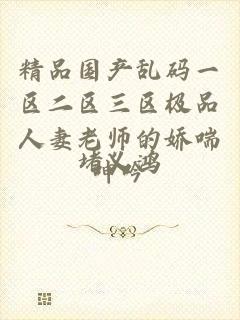 精品国产乱码一
区二区三区极品
人妻老师的娇喘
呻吟
堵义鸿